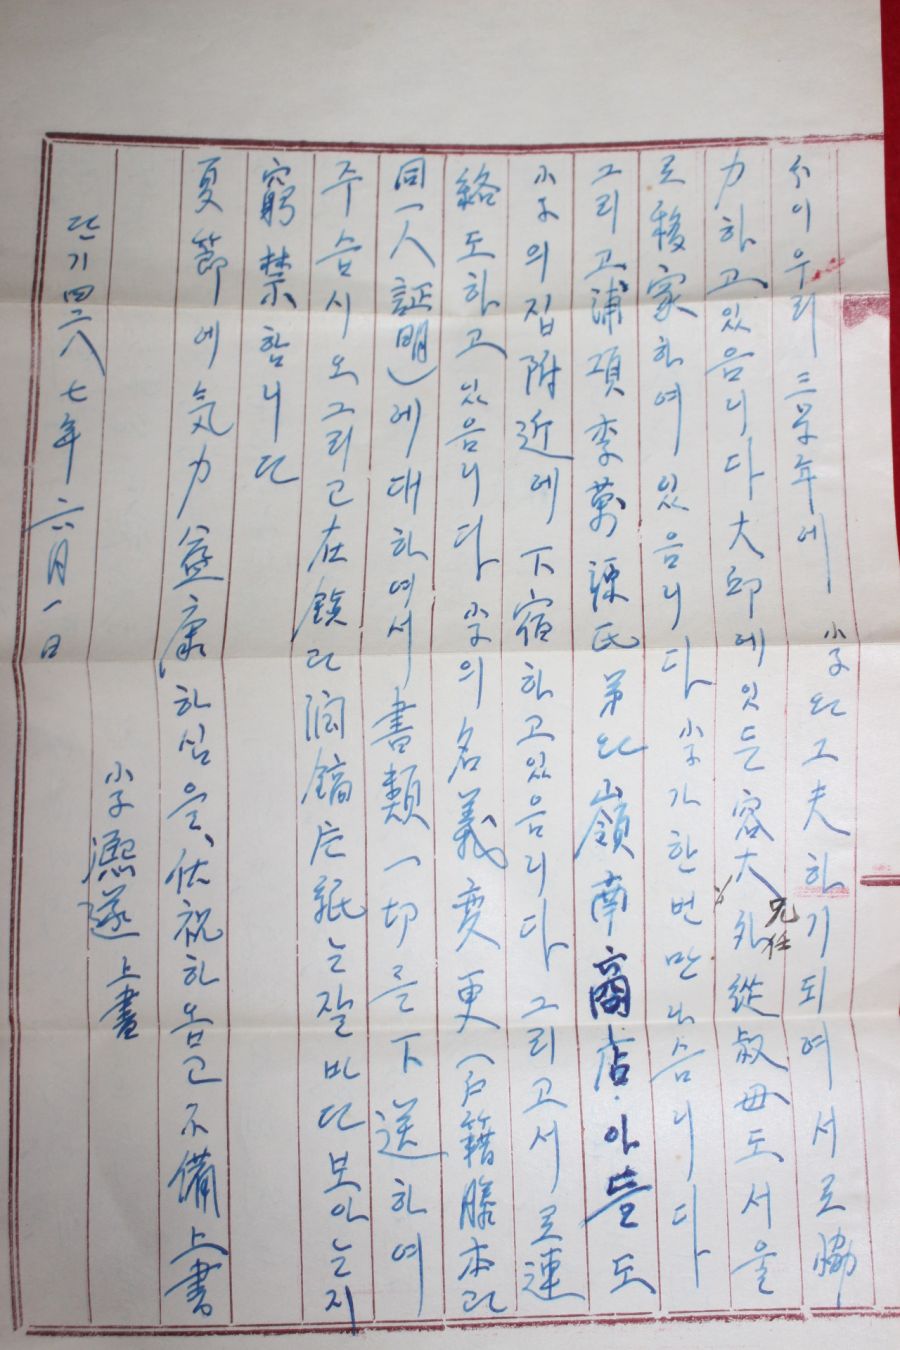 이 우리 三학年에 小子와 工夫하기되여서로 協
力하고있음니다 大邱에있든 容大 外從叔母도 서울
로 移家하여있음니다 小子가한번만나슴니다
그리고 浦項 李萬 氏 弟와 嶺南商店 아들도
小子의집附近에 下宿하고있음니다 그리고서로 連
絡도하고있음니다 小子의 名義変更(戶籍謄本과
同一人証明)에대하여서 書類一切를 下送하여
주습시오 그리고 在 과 는잘바다보아는지
窮禁함니다
夏節에 気力益康하심을 伏祝하옵고 不備上書
小子 上書
단기四二八七年 六月一日